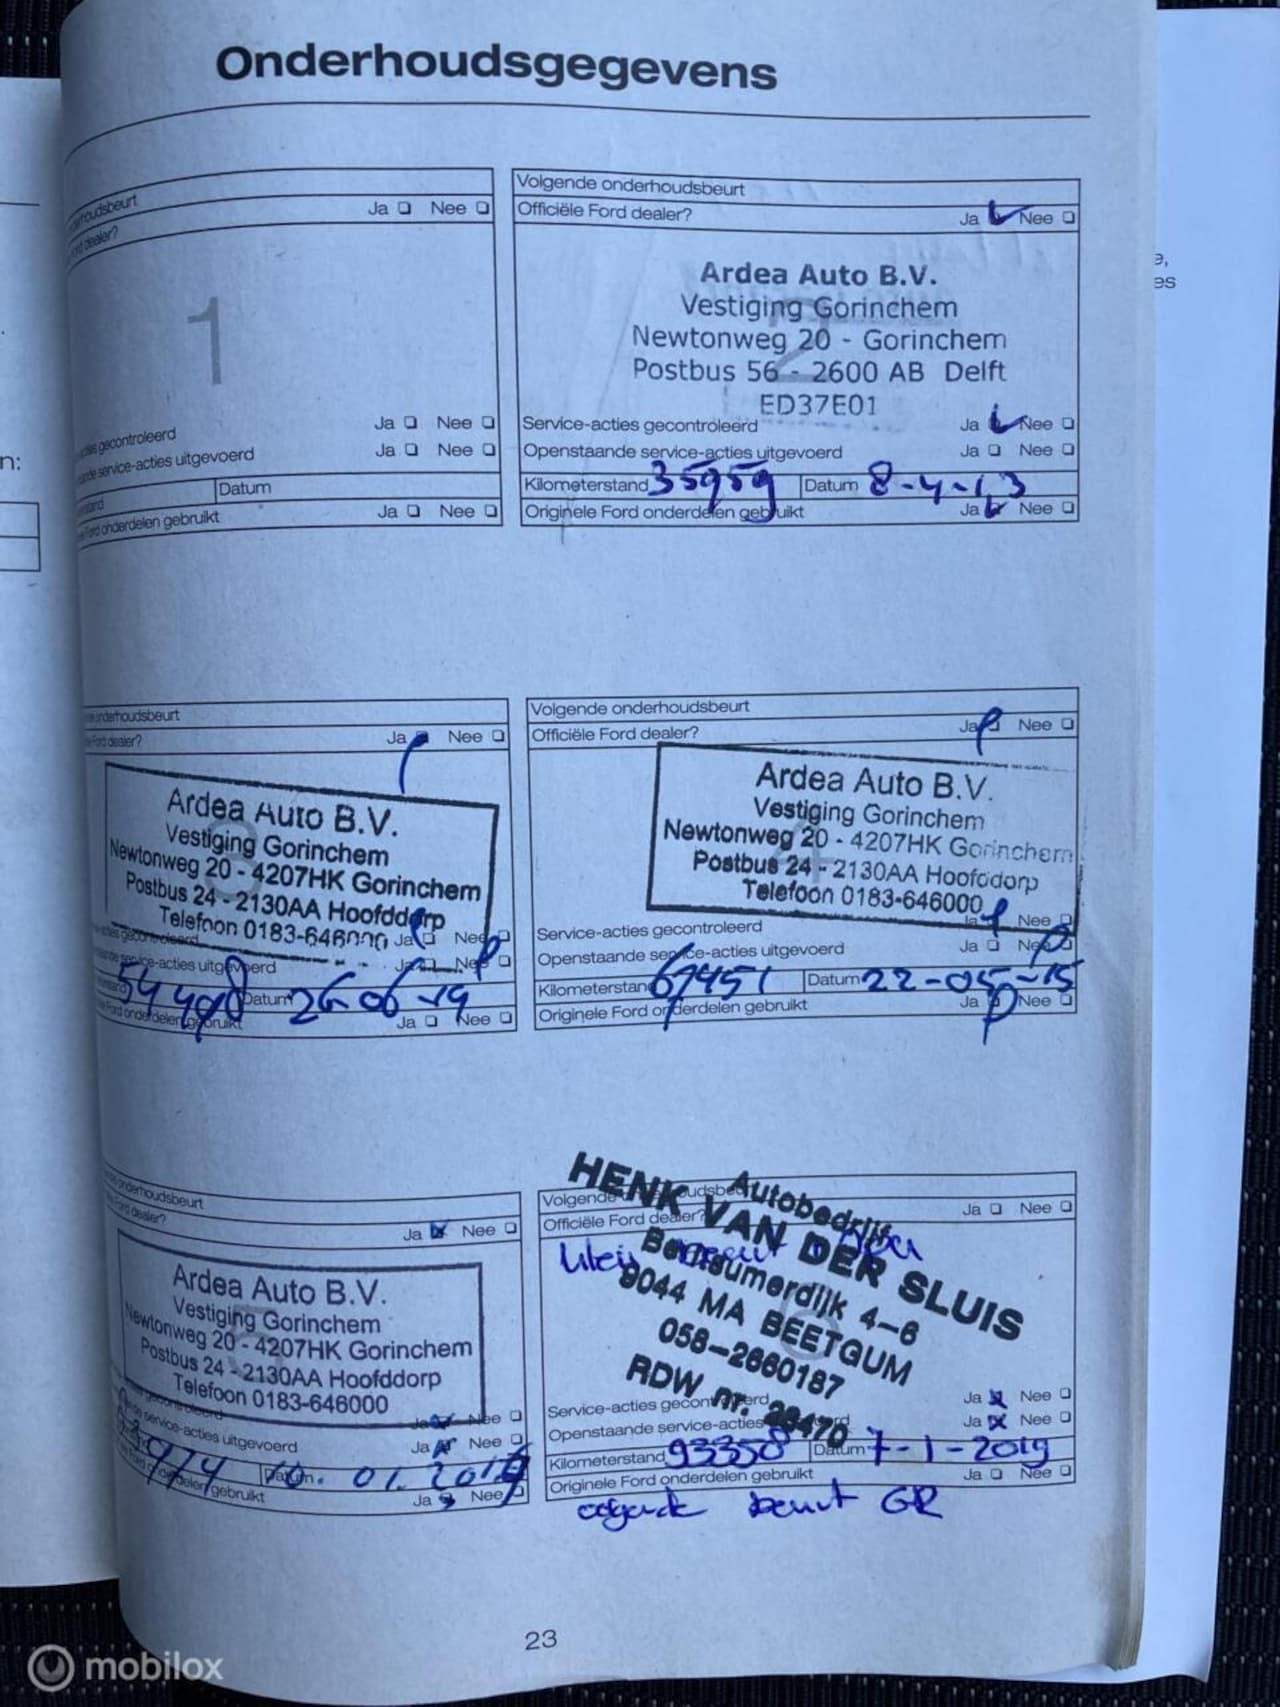 Onderhoudsgegevens
Ja Nee
1
Ja Nee
gecontroleerd
Ja Nee
service-acties uitgevoerd
Datum
Ford onderdelen gebruikt
Ja Nee
Volgende onderhoudsbeurt
Officiële Ford dealer?
Ja Nee
Ardea Auto B.V.
Vestiging Gorinchem
Newtonweg 20 - Gorinchem
Postbus 56 - 2600 AB Delft
ED37E01
Service-acties gecontroleerd
Ja Nee
Openstaande service-acties uitgevoerd
Ja Nee
Kilometerstand 35959 Datum 8-4-13
Originele Ford onderdelen gebruikt
Ja Nee
onderhoudsbeurt
Ford dealer?
Ja Nee
Ardea Auto B.V.
Vestiging Gorinchem
Newtonweg 20 - 4207HK Gorinchem
Postbus 24 - 2130AA Hoofddorp
Telefoon 0183-646000
Ja Nee
service-acties uitgevoerd
Ja Nee
54498 Datum 26-06-14
Ford onderdelen gebruikt
Ja Nee
Volgende onderhoudsbeurt
Officiële Ford dealer?
Ja Nee
Ardea Auto B.V.
Vestiging Gorinchem
Newtonweg 20 - 4207HK Gorinchem
Postbus 24 - 2130AA Hoofddorp
Telefoon 0183-646000
Service-acties gecontroleerd
Ja Nee
Openstaande service-acties uitgevoerd
Ja Nee
Kilometerstand 67451 Datum 22-05-15
Originele Ford onderdelen gebruikt
Ja Nee
onderhoudsbeurt
Ford dealer?
Ja Nee
Ardea Auto B.V.
Vestiging Gorinchem
Newtonweg 20 - 4207HK Gorinchem
Postbus 24 - 2130AA Hoofddorp
Telefoon 0183-646000
Ja Nee
service-acties uitgevoerd
Ja Nee
Datum
Ford onderdelen gebruikt
Ja Nee
Volgende onderhoudsbeurt
Officiële Ford dealer?
Ja Nee
Autobedrijf
HENK VAN DER SLUIS
4-6
9044 MA BEETGUM
058-2660187
RDW nr.
Service-acties gecontroleerd
Ja Nee
Openstaande service-acties
Ja Nee
Kilometerstand 93358 Datum 7-1-2019
Originele Ford onderdelen gebruikt
Ja Nee
beurt GR
23
mobilox